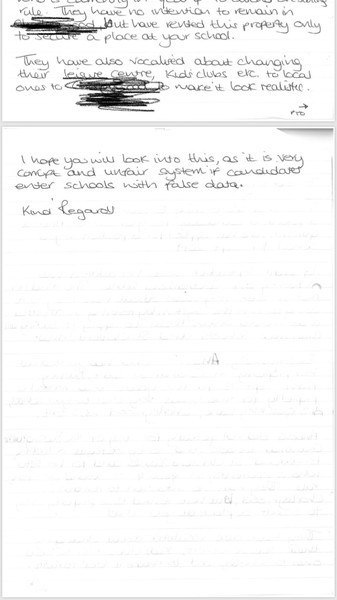 rule. They have no intention to remain in
but have rented this property only
to secure a place at your school.
They have also vocalised about changing
their leisure centre, kids clubs etc. to local
ones to make it look realistic.
PTO
I hope you will look into this, as it is very
corrupt and unfair system if candidates
enter schools with false data.
Kind Regards